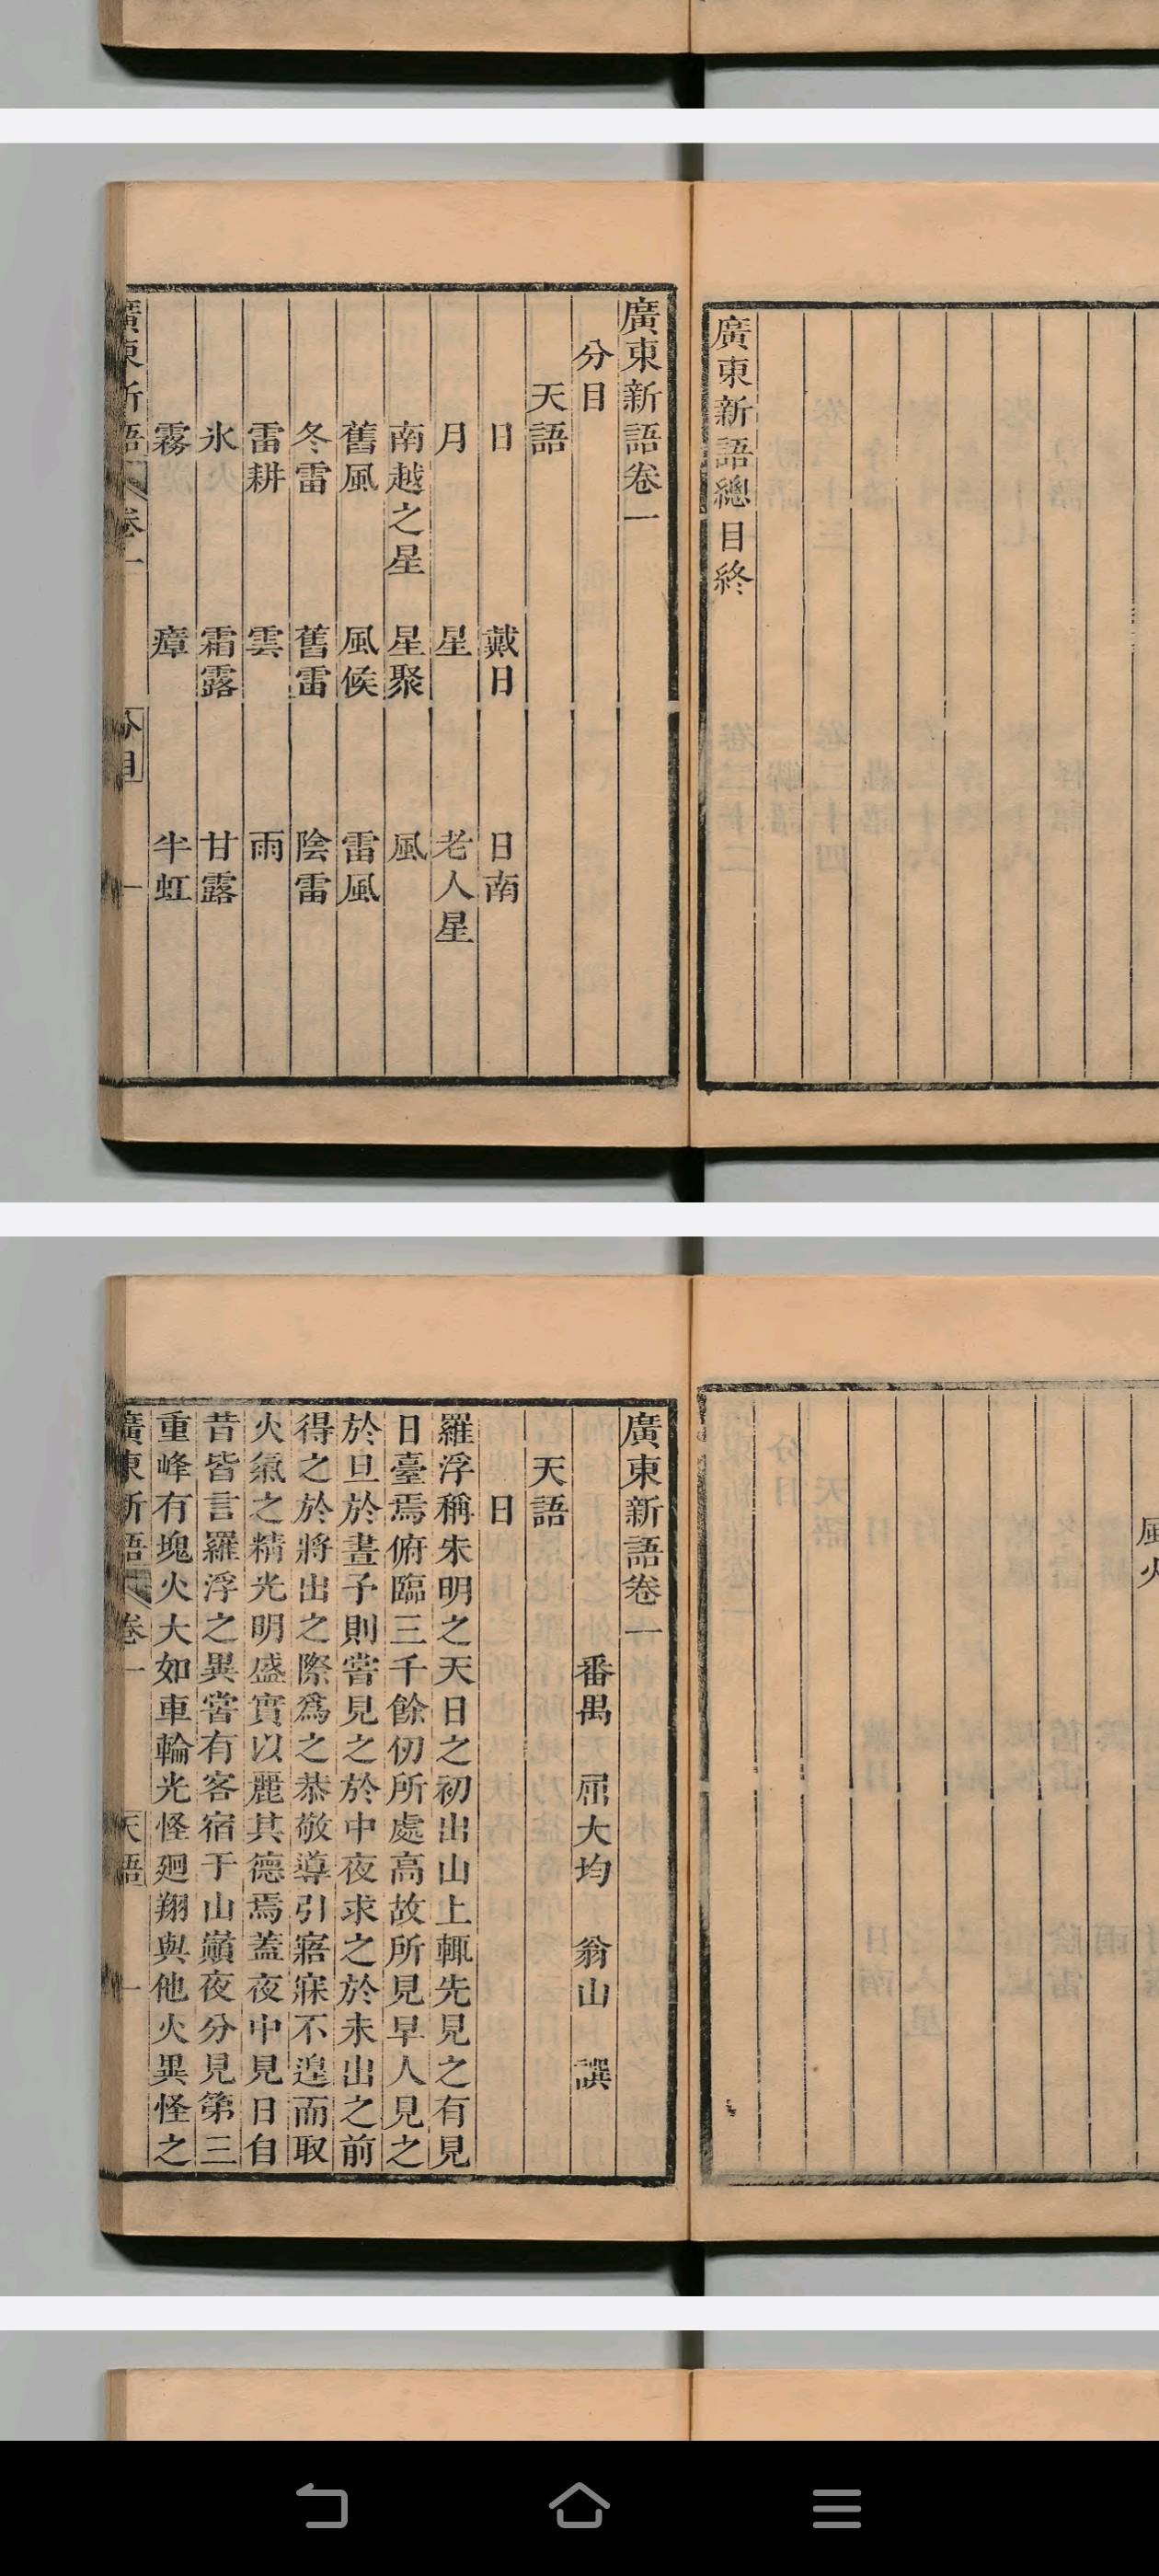 廣東新語總目終
廣東新語卷一
分目
天語
日 戴日 日南
月 星 老人星
南越之星 星聚 風
舊風 風候 雷風
冬雷 舊雷 陰雷
雷耕 雲 雨
氷 霜露 甘露
霧 瘴 半虹
廣東新語 卷一 分目 一
廣東新語卷一
番禺 屈大均 翁山 譔
天語
日
羅浮稱朱明之天日之初出山上輒先見之有見
日臺焉俯臨三千餘仞所處高故所見早人見之
於旦於晝予則嘗見之於中夜求之於未出之前
得之於將出之際爲之恭敬導引寤寐不遑而取
火氣之精光明盛實以麗其德焉蓋夜中見日自
昔皆言羅浮之異嘗有客宿于山巓夜分見第三
重峰有塊火大如車輪光怪廻翔與他火異怪之
廣東新語 卷一 天語 一